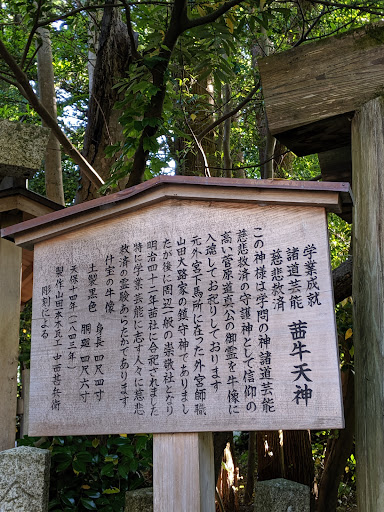 学業成就
諸道芸能
慈悲救済
茜牛天神
この神様は学問の神諸道芸能
慈悲救済の守護神として信仰の
高い菅原道真公の御霊を牛像に
入魂してお祀りしております
元外宮下馬所に在った外宮師職
山田大路家の鎮守神でありまし
たが後に周辺一般の崇敬社となり
明治四十二年茜社に合祀されました
特に学業芸能に志す人々に慈悲
救済の霊験あらたかであります
付宝の牛像
土製黒色 身長 四尺四寸
胴廻 四尺六寸
天保十四年(一八四三年)
製作 山田本木庄工 中西甚兵衛
彫刻による